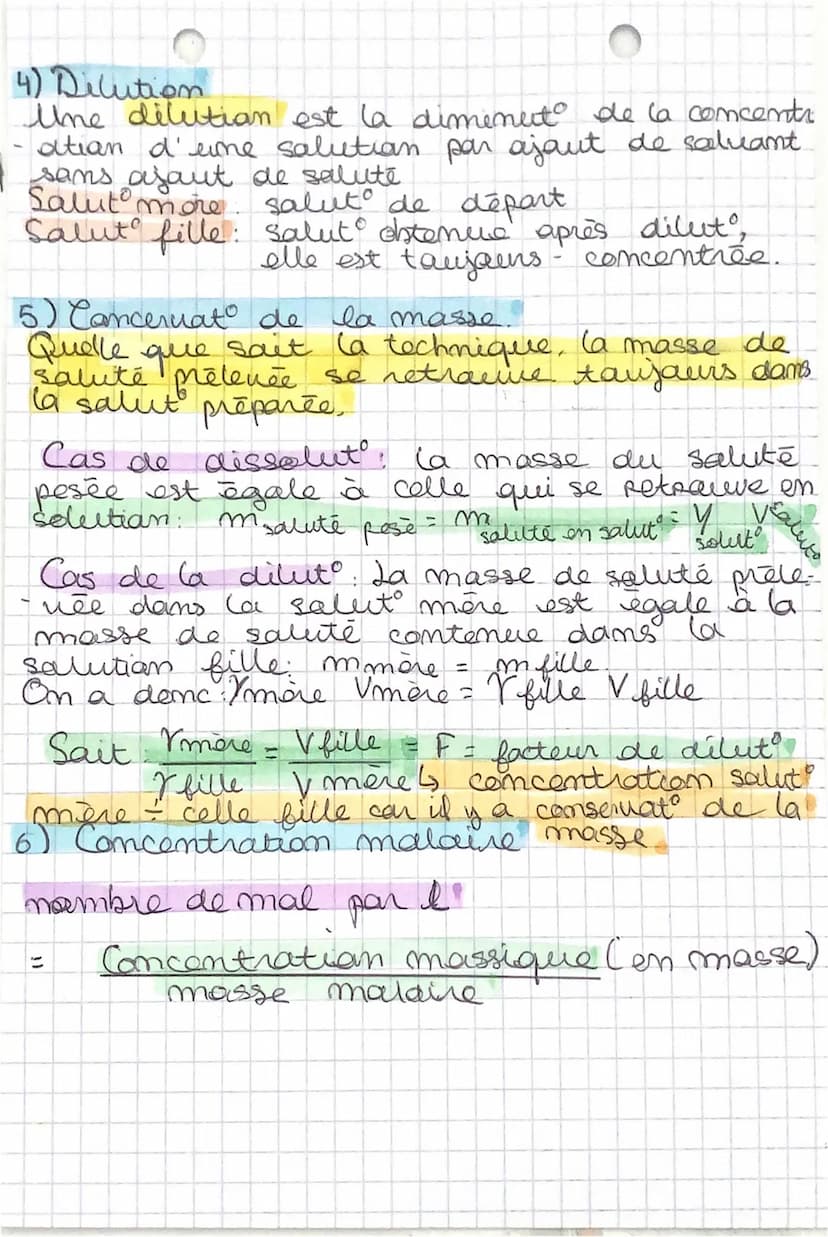 4) Dilution
Une dilution est la diminut° de la concentr
- ation d'une solution par ajout de solvant
sans ajout de soluté
Solut° mère : solut° de départ
Solut° fille : solut° obtenue après dilut°,
elle est toujours - concentrée.
5) Conservat° de la masse.
Quelle que soit la technique, la masse de
soluté prélevée se retrouve toujours dans
la solut° préparée.
Cas de dissolut° : la masse du soluté
pesée est égale à celle qui se retrouve en
solution : m soluté pesé = m soluté en solut° = γ solut° V solut°
Cas de la dilut° : La masse de soluté préle-
- vée dans la solut° mère est égale à la
masse de soluté contenue dans la
solution fille : m mère = m fille.
On a donc : γ mère V mère = γ fille V fille
Soit : γ mère / γ fille = V fille / V mère = F = facteur de dilut°
↳ concentration solut°
mère ÷ celle fille car il y a conservat° de la
masse.
6) Concentration molaire
nombre de mol par l
= Concentration massique (en masse) / masse molaire